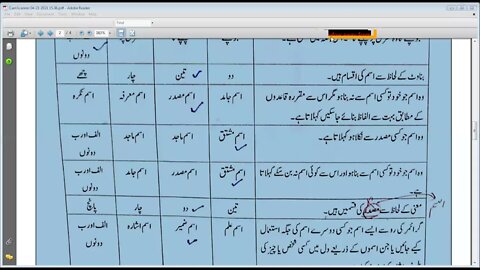 CamScanner 04-23-2021 15.36.pdf - Adobe Reader
Find
2 / 4
دونوں
بناوٹ کے لحاظ سے اسم کی اقسام ہیں۔ دو تین چار چھے
وہ اسم جو خود تو کسی اسم سے نہ بنا ہو مگر اس سے مقررہ قاعدوں اسم جامد اسم مصدر اسم معرفہ اسم نکرہ
کے مطابق بہت سے الفاظ بنائے جاسکیں کہلاتا ہے۔
وہ اسم جو کسی مصدر سے نکلا ہو کہلاتا ہے۔ اسم مشتق اسم ماجد اسم ماجد الف اور ب
دونوں
وہ اسم جو خود تو کسی اسم سے نہ بنا ہو اور اس سے کوئی اسم نہ بن سکے کہلاتا اسم مشتق اسم مصدر اسم جامد الف اور ب
ہے۔ دونوں
معنی کے لحاظ سے مصدر کی قسمیں ہیں۔ تین دو چار پانچ
اسم
گرائمر کی رو سے ایسے اسم جو کسی دوسرے اسم کی جگہ استعمال اسم علم اسم ضمیر اسم اشارہ الف اور ب
کیے جائیں یا جن اسموں کے ذریعے دل میں کسی شخص یا چیز کی دونوں